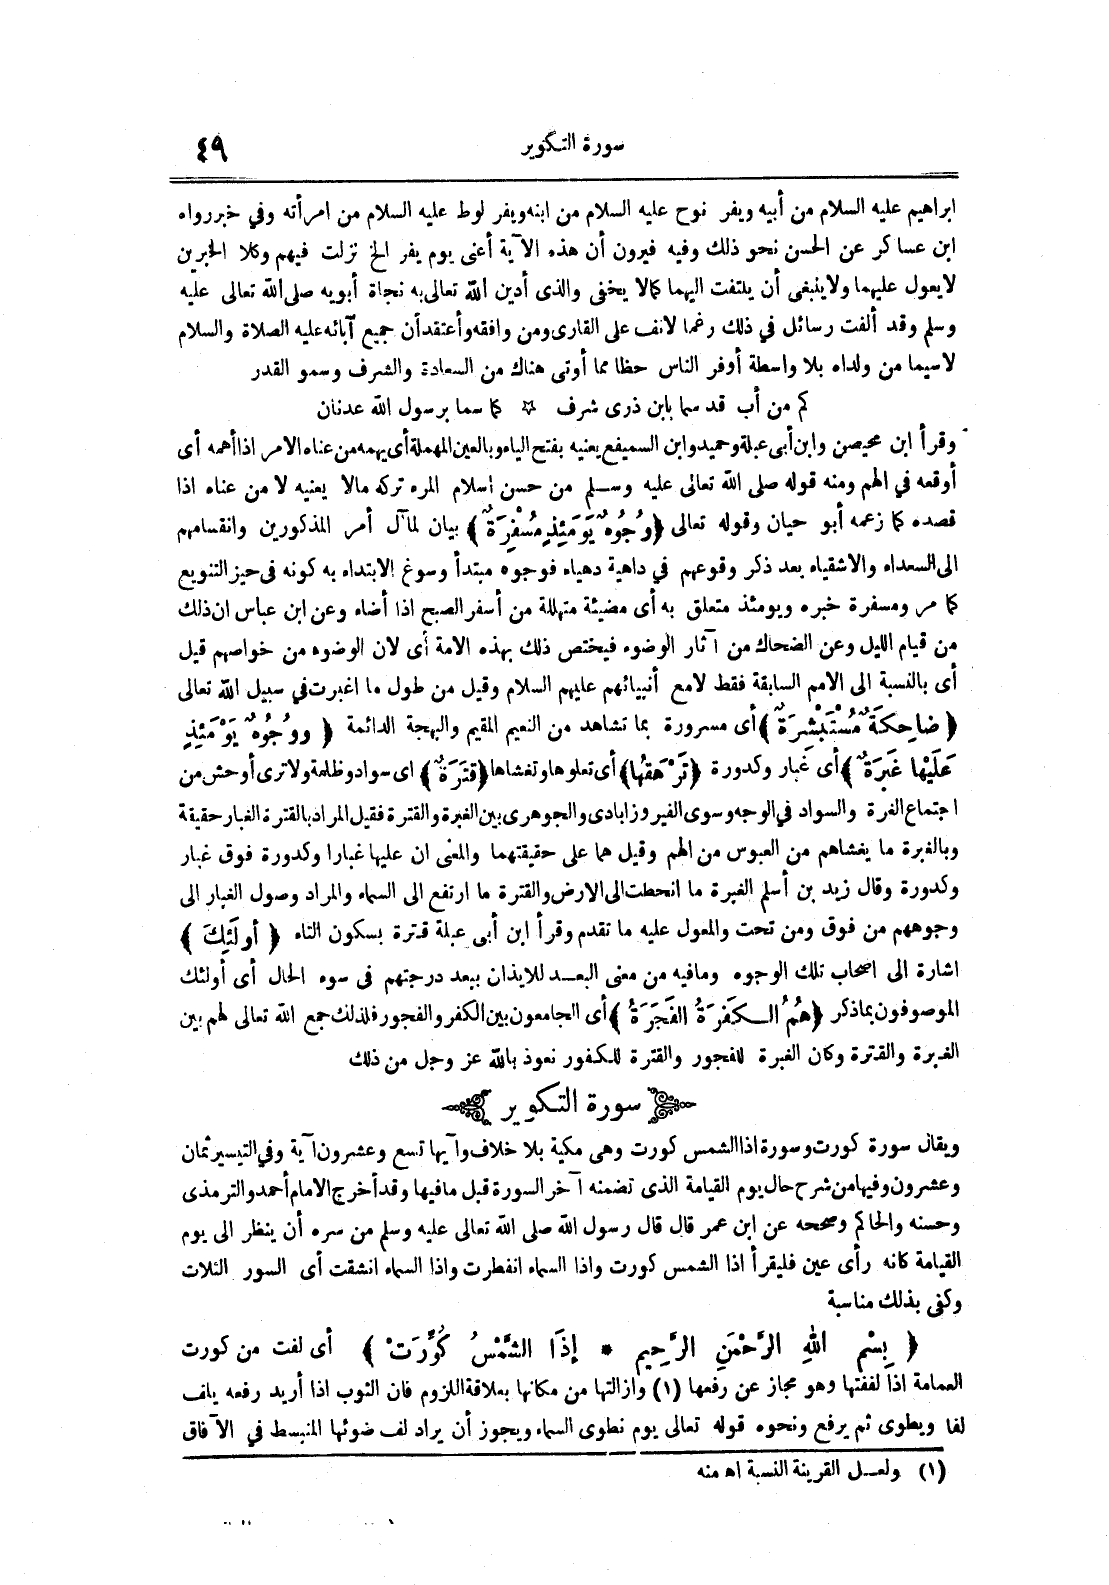 سورة التكوير
٤٩
ابراهيم عليه السلام من أبيه ويفر نوح عليه السلام من ابنه ويفر لوط عليه السلام من امرأته وفي خبر رواه
ابن عساكر عن الحسن نحو ذلك وفيه فيرون أن هذه الآية أعنى يوم يفر الخ نزلت فيهم وكلا الخبرين
لا يعول عليهما ولا ينبغى أن يلتفت اليهما كما لا يخفى والذى أدين الله تعالى به نجاة أبويه صلى الله تعالى عليه
وسلم وقد ألفت رسائل في ذلك رغما لانف على القارى ومن وافقه وأعتقد أن جميع آبائه عليه الصلاة والسلام
لاسيما من ولداه بلا واسطة أوفر الناس حظا مما أوتى هناك من السعادة والشرف وسمو القدر
كم من أب قد سما بابن ذرى شرف ☆ كما سما برسول الله عدنان
وقرأ ابن محيصن وابن أبى عبلة وحميد وابن السميفع يعنيه بفتح الياء وبالعين المهملة أى يهمه من عناه الامر اذا أهمه أى
أوقعه في الهم ومنه قوله صلى الله تعالى عليه وسلم من حسن اسلام المرء تركه مالا يعنيه لا من عناه اذا
قصده كما زعمه أبو حيان وقوله تعالى ﴿ وُجُوهٌ يَوْمَئِذٍ مُسْفِرَةٌ ﴾ بيان لمآل أمر المذكورين وانقسامهم
الى السعداء والاشقياء بعد ذكر وقوعهم في داهية دهياء فوجوه مبتدأ وسوغ الابتداء به كونه فى حيز التنويع
كما مر ومسفرة خبره ويومئذ متعلق به أى مضيئة متهللة من أسفر الصبح اذا أضاء وعن ابن عباس ان ذلك
من قيام الليل وعن الضحاك من آثار الوضوء فيختص ذلك بهذه الامة أى لان الوضوء من خواصهم قيل
أى بالنسبة الى الامم السابقة فقط لامع أنبيائهم عليهم السلام وقيل من طول ما اغبرت في سبيل الله تعالى
﴿ ضَاحِكَةٌ مُسْتَبْشِرَةٌ ﴾ أى مسرورة بما تشاهد من النعيم المقيم والبهجة الدائمة ﴿ ووُجُوهٌ يَوْمَئِذٍ
عَلَيْهَا غَبَرَةٌ ﴾ أى غبار وكدورة ﴿ تَرْهَقُهَا ﴾ أى تعلوها وتغشاها ﴿ قَتَرَةٌ ﴾ اى سواد وظلمة ولا ترى أوحش من
اجتماع الغبرة والسواد في الوجه وسوى الفيروزابادى والجوهرى بين الغبرة والقترة فقيل المراد بالقترة الغبار حقيقة
وبالغبرة ما يغشاهم من العبوس من الهم وقيل هما على حقيقتهما والمعنى ان عليها غبارا وكدورة فوق غبار
وكدورة وقال زيد بن أسلم الغبرة ما انحطت الى الارض والقترة ما ارتفع الى السماء والمراد وصول الغبار الى
وجوههم من فوق ومن تحت والمعول عليه ما تقدم وقرأ ابن أبى عبلة قترة بسكون التاء ﴿ أُولَئِكَ ﴾
اشارة الى اصحاب تلك الوجوه ومافيه من معنى البعد للايذان ببعد درجتهم فى سوء الحال أى أولئك
الموصوفون بما ذكر ﴿ هُمُ الكَفَرَةُ الفَجَرَةُ ﴾ أى الجامعون بين الكفر والفجور فلذلك جمع الله تعالى لهم بين
الغبرة والقترة وكان الغبرة للفجور والقترة للكفور نعوذ بالله عز وجل من ذلك
سورة التكوير
ويقال سورة كورت وسورة اذا الشمس كورت وهى مكية بلا خلاف وآيها تسع وعشرون آية وفي التيسير ثمان
وعشرون وفيها من شرح حال يوم القيامة الذى تضمنه آخر السورة قبل ما فيها وقد أخرج الامام أحمد والترمذى
وحسنه والحاكم وصححه عن ابن عمر قال قال رسول الله صلى الله تعالى عليه وسلم من سره أن ينظر الى يوم
القيامة كانه رأى عين فليقرأ اذا الشمس كورت واذا السماء انفطرت واذا السماء انشقت أى السور الثلاث
وكفى بذلك مناسبة
﴿ بِسْمِ اللهِ الرَّحْمَنِ الرَّحِيمِ * إِذَا الشَّمْسُ كُوِّرَتْ ﴾ أى لفت من كورت
العمامة اذا لففتها وهو مجاز عن رفعها (١) وازالتها من مكانها بعلاقة اللزوم فان الثوب اذا أريد رفعه يلف
لفا ويطوى ثم يرفع ونحوه قوله تعالى يوم نطوى السماء ويجوز أن يراد لف ضوئها المنبسط في الآفاق
(١) ولعل القرينة النسبة اه منه